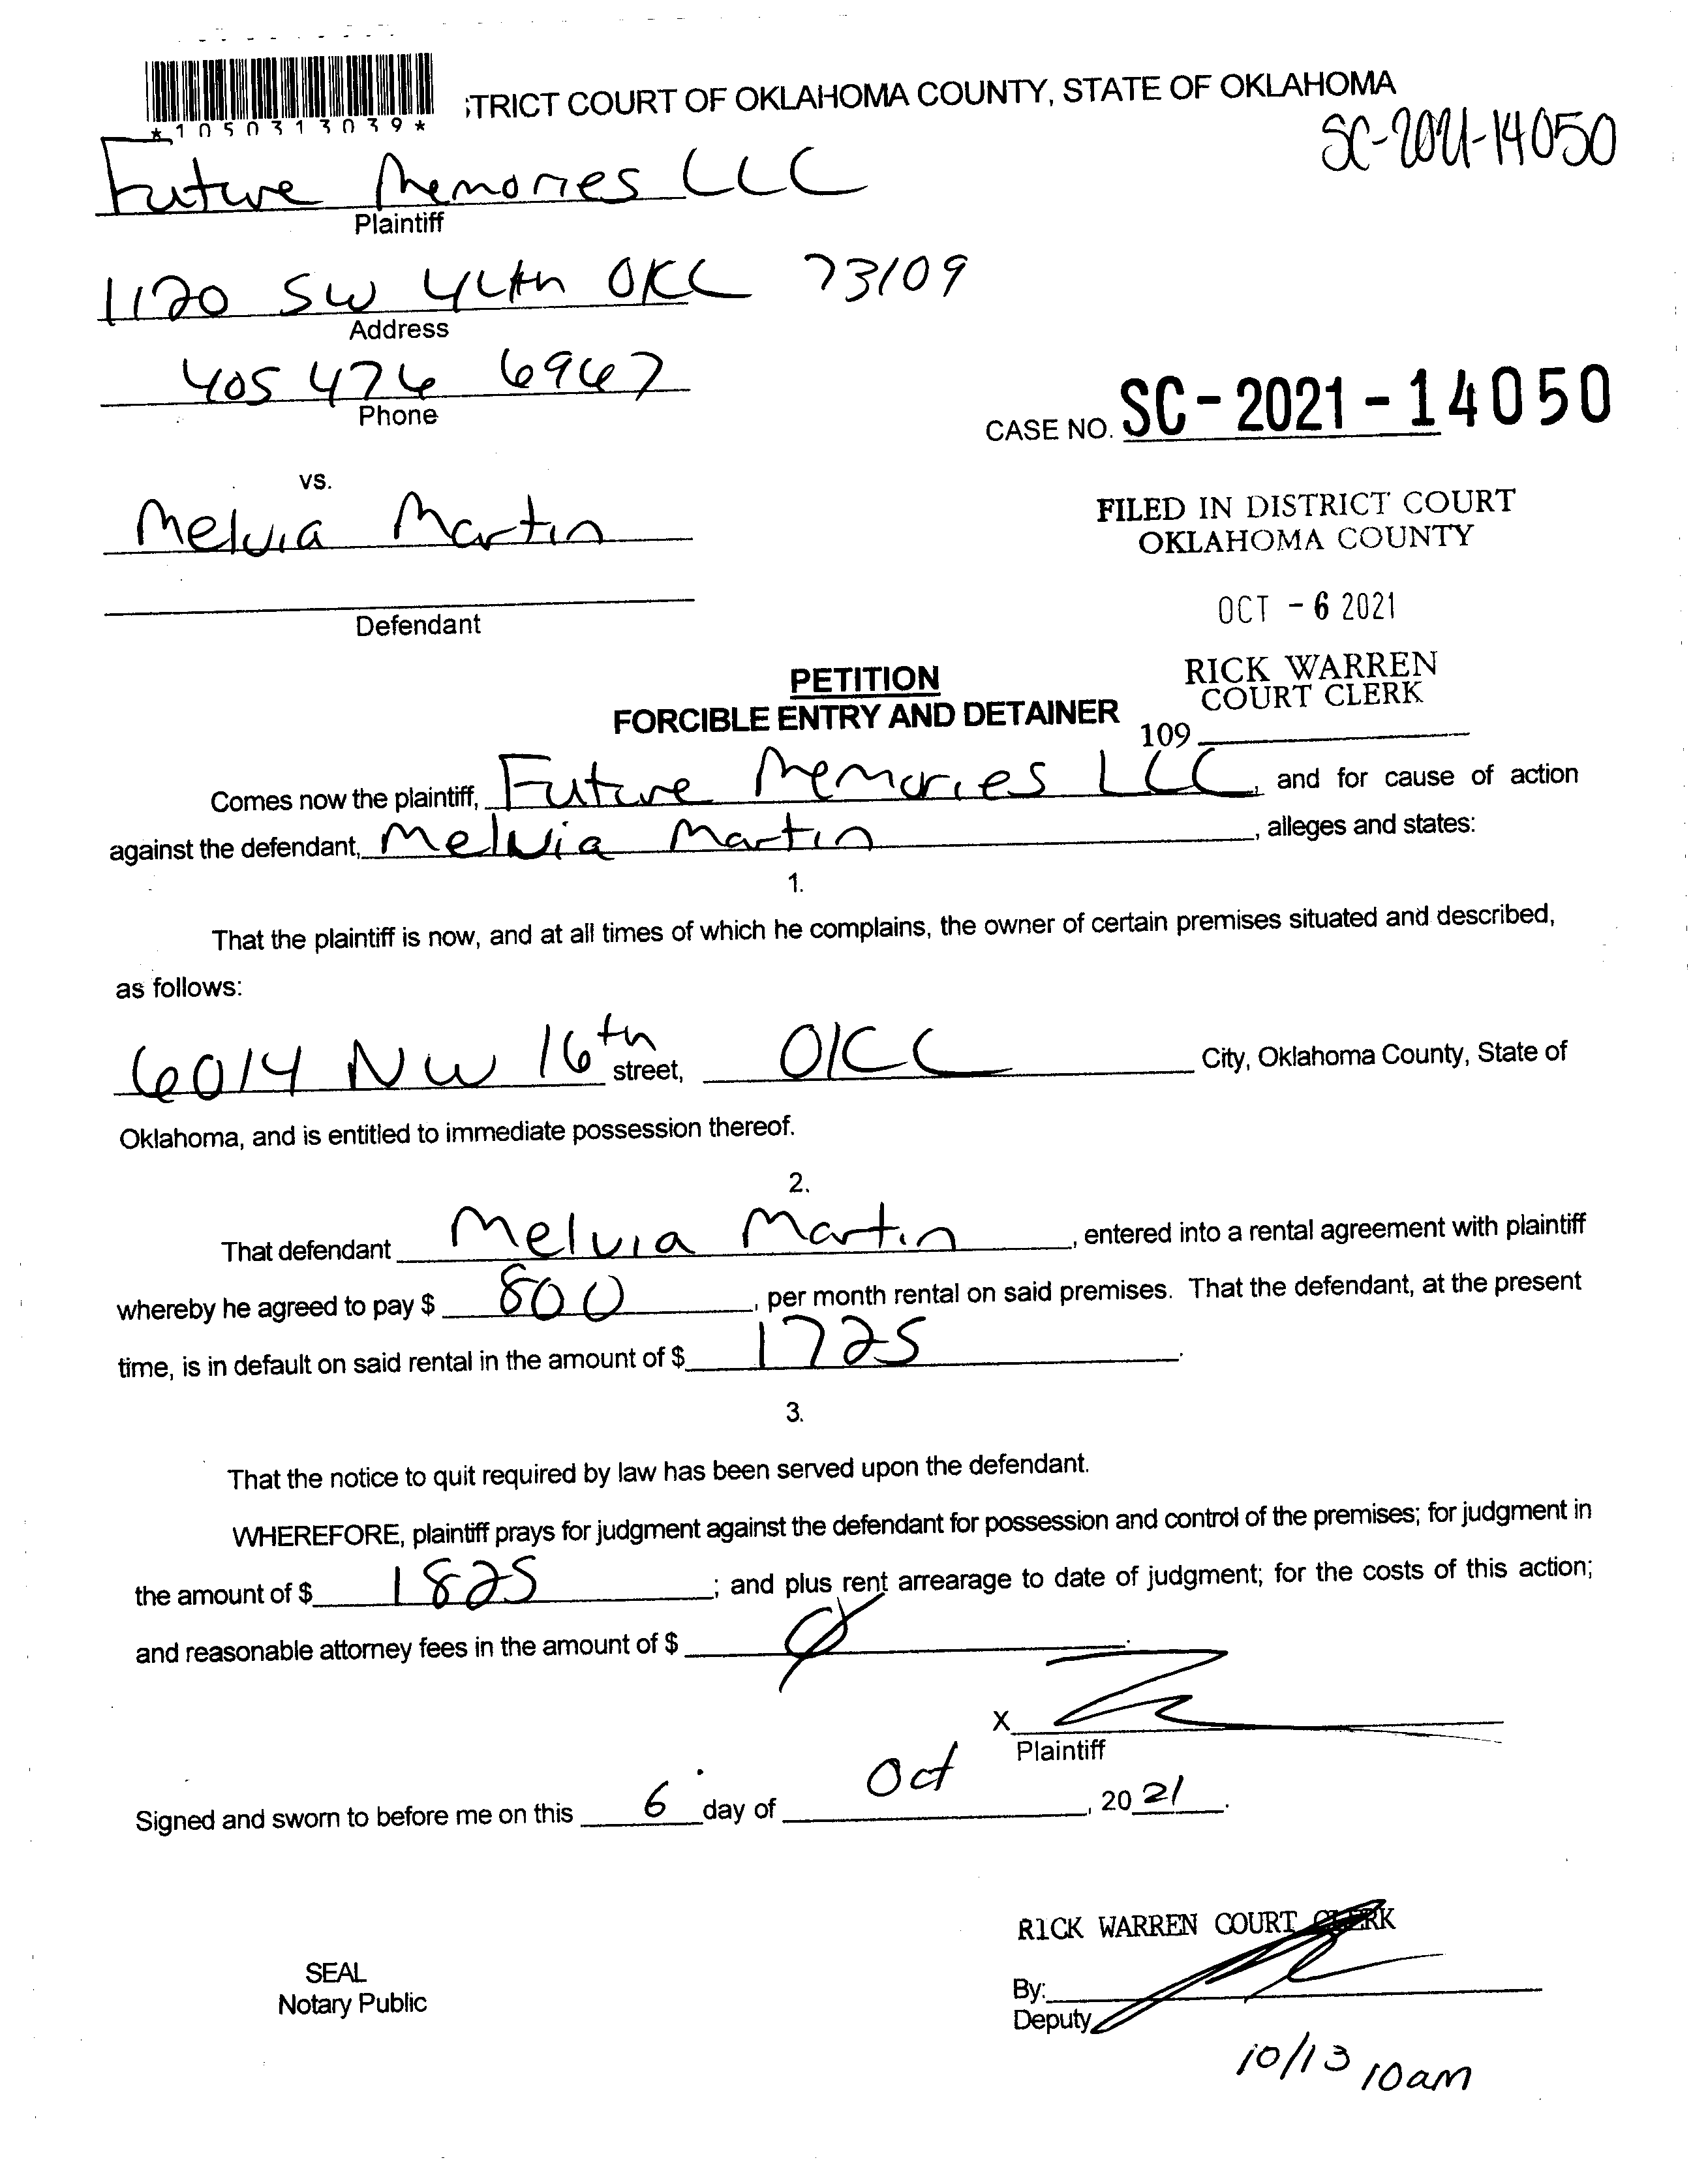 *1050313039*
TRICT COURT OF OKLAHOMA COUNTY, STATE OF OKLAHOMA
SC-2021-14050
Future Memories LLC
Plaintiff
1120 SW 44th OKC 73109
Address
405 476 6967
Phone
CASE NO. SC-2021-14050
vs.
Melvia Martin
FILED IN DISTRICT COURT
OKLAHOMA COUNTY
Defendant
OCT - 6 2021
PETITION
RICK WARREN
COURT CLERK
FORCIBLE ENTRY AND DETAINER
109
Comes now the plaintiff, Future Memories LLC, and for cause of action
against the defendant, Melvia Martin, alleges and states:
1.
That the plaintiff is now, and at all times of which he complains, the owner of certain premises situated and described,
as follows:
6014 NW 16th street, OKC City, Oklahoma County, State of
Oklahoma, and is entitled to immediate possession thereof.
2.
That defendant Melvia Martin, entered into a rental agreement with plaintiff
whereby he agreed to pay $ 800, per month rental on said premises. That the defendant, at the present
time, is in default on said rental in the amount of $ 1725.
3.
That the notice to quit required by law has been served upon the defendant.
WHEREFORE, plaintiff prays for judgment against the defendant for possession and control of the premises; for judgment in
the amount of $ 1825; and plus rent arrearage to date of judgment; for the costs of this action;
and reasonable attorney fees in the amount of $ Ø.
X
Plaintiff
Signed and sworn to before me on this 6 day of Oct, 2021.
RICK WARREN COURT CLERK
SEAL
Notary Public
By:
Deputy
10/13 10am